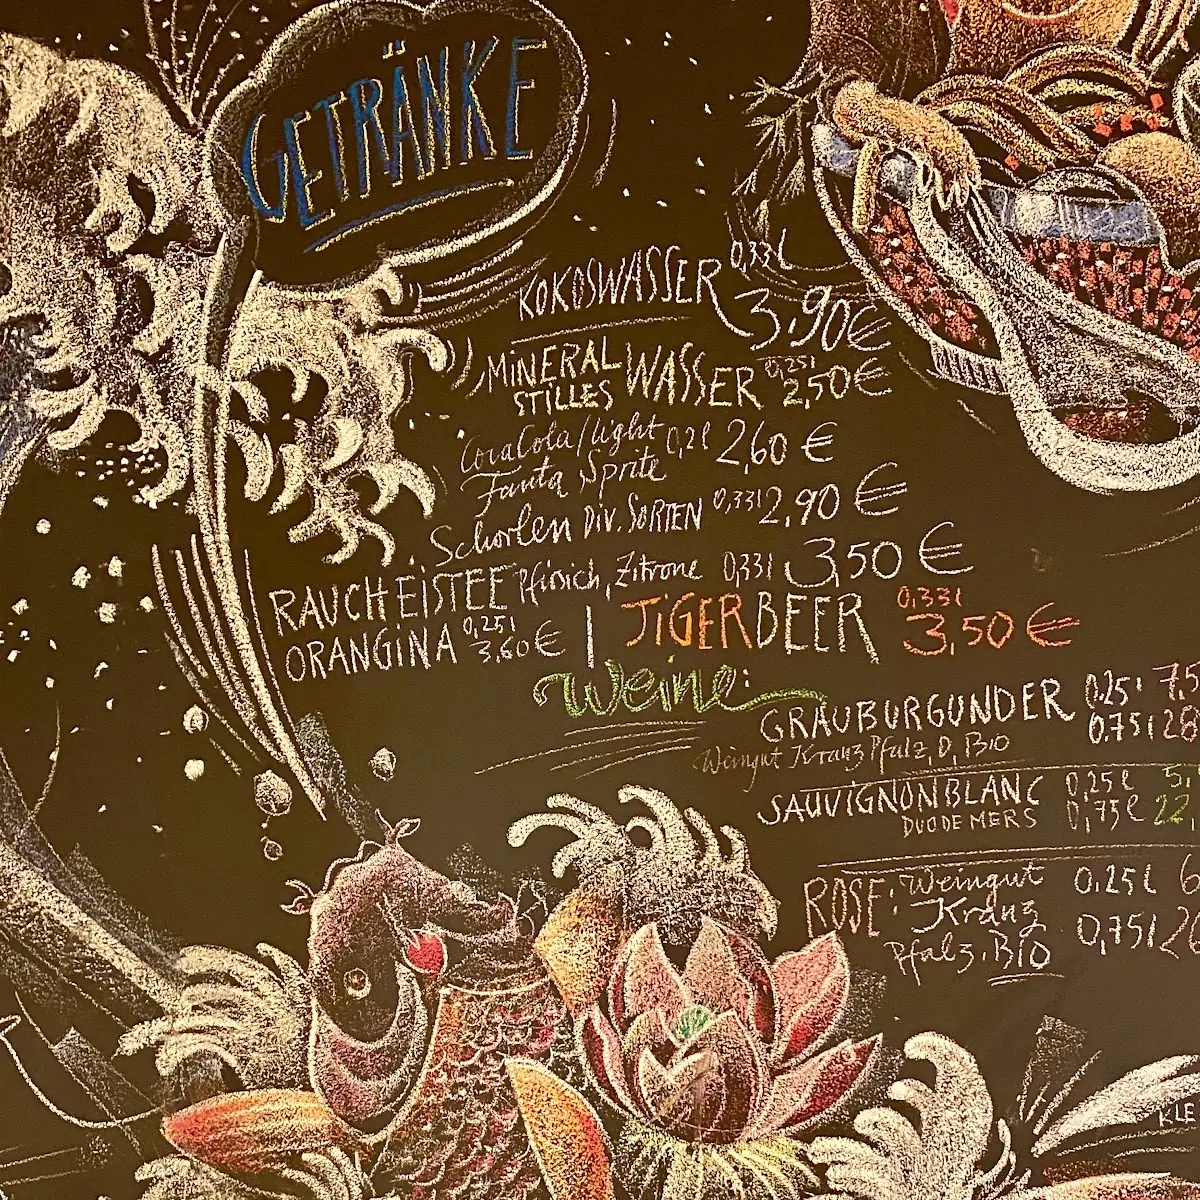 GETRÄNKE
KOKOSWASSER 0,33l 3,90€
MINERAL STILLES WASSER 0,25l 2,50€
CocaCola/light 0,2l 2,60 €
Fanta Sprite
Schorlen DIV. SORTEN 0,33l 2,90 €
RAUCH EISTEE Pfirsich, Zitrone 0,33l 3,50 €
ORANGINA 0,25l 3,60€ | TIGERBEER 0,33l 3,50 €
Weine:
GRAUBURGUNDER 0,25l 7,5
0,75l 28
Weingut Kranz Pfalz, D, BIO
SAUVIGNON BLANC 0,25l 5,
DUO DE MERS 0,75l 22,
ROSE: Weingut 0,25l 6
Kranz 0,75l
Pfalz. BIO
KLE